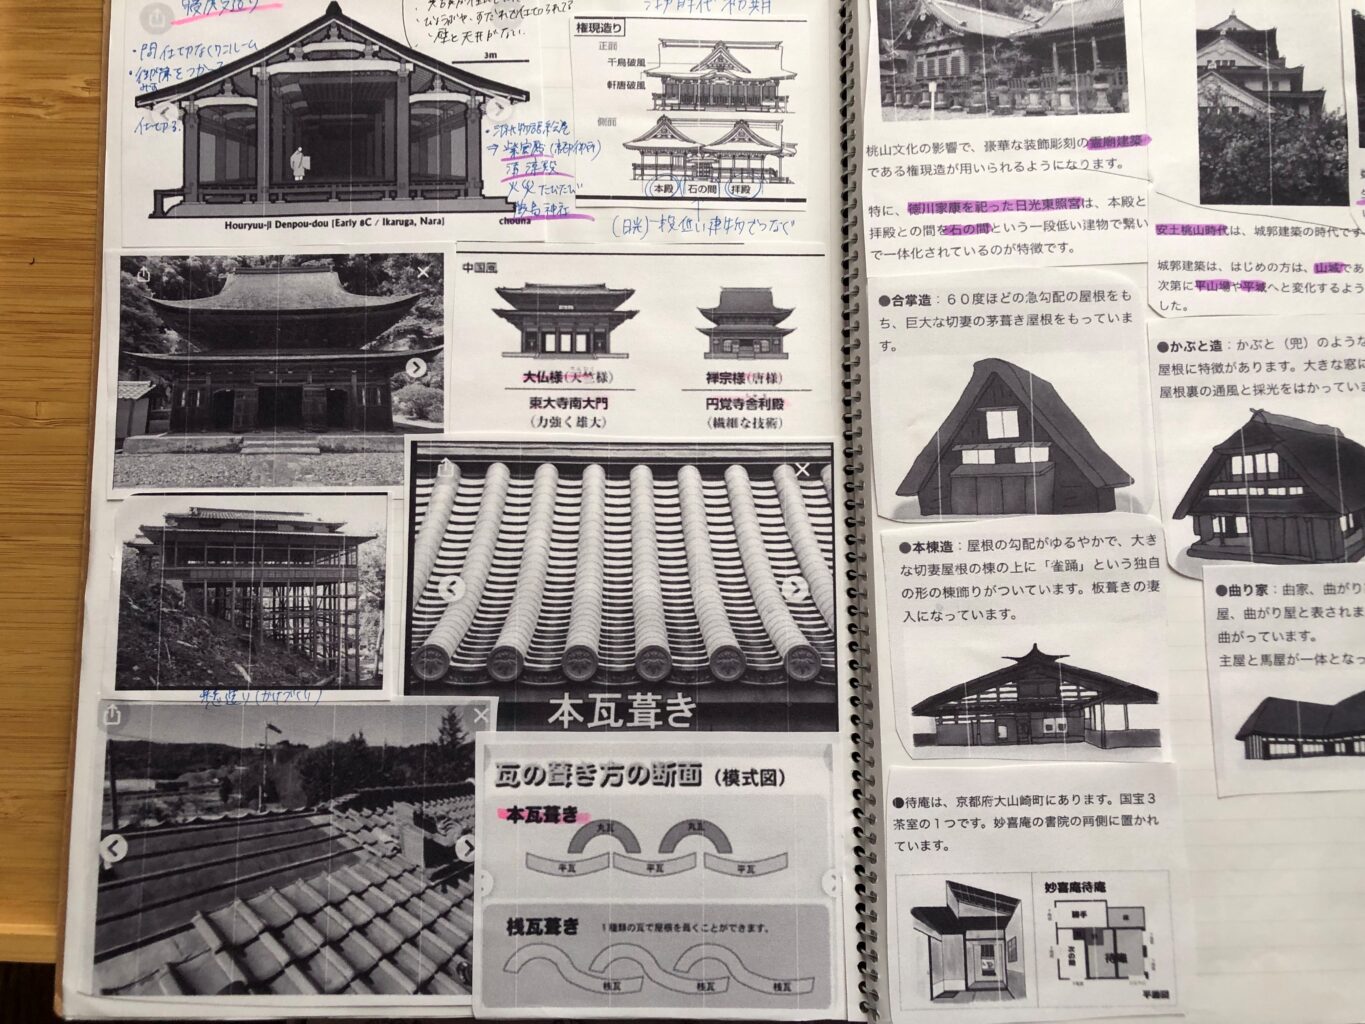 寝殿造り
・間仕切なくワンルーム
仕切る.
壁と天井がない.
3m
Houryuu-ji Denpou-dou [Early 8C / Ikaruga, Nara]
chouna
清涼殿
厳島神社
権現造り
正面
千鳥破風
軒唐破風
側面
本殿
石の間
拝殿
(日光)一段低い建物でつなぐ
中国風
大仏様(天竺様)
東大寺南大門
(力強く雄大)
禅宗様(唐様)
円覚寺舎利殿
(繊細な技術)
懸造り(かけづくり)
本瓦葺き
瓦の葺き方の断面(模式図)
本瓦葺き
丸瓦
丸瓦
平瓦
平瓦
平瓦
桟瓦葺き
1種類の瓦で屋根を葺くことができます。
桟瓦
桟瓦
桟瓦
桃山文化の影響で、豪華な装飾彫刻の霊廟建築
である権現造が用いられるようになります。
特に、徳川家康を祀った日光東照宮は、本殿と
拝殿との間を石の間という一段低い建物で繋い
で一体化されているのが特徴です。
安土桃山時代は、城郭建築の時代です
城郭建築は、はじめの方は、山城であ
次第に平山場や平城へと変化するよう
した。
●合掌造:60度ほどの急勾配の屋根をも
ち、巨大な切妻の茅葺き屋根をもっていま
す。
●かぶと造:かぶと(兜)のような
屋根に特徴があります。大きな窓に
屋根裏の通風と採光をはかってい
●本棟造:屋根の勾配がゆるやかで、大き
な切妻屋根の棟の上に「雀踊」という独自
の形の棟飾りがついています。板葺きの妻
入になっています。
●曲り家:曲家、曲がり
屋、曲がり屋と表されま
曲がっています。
主屋と馬屋が一体となっ
●待庵は、京都府大山崎町にあります。国宝3
茶室の1つです。妙喜庵の書院の両側に置かれ
ています。
妙喜庵待庵
勝手
次の間
待庵
平面図